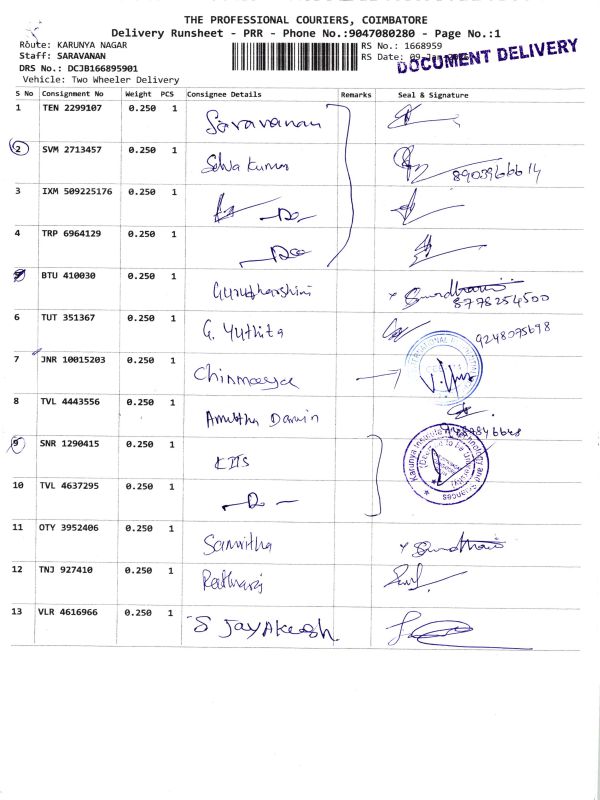 THE PROFESSIONAL COURIERS, COIMBATORE
Delivery Runsheet - PRR - Phone No.:9047080280 - Page No.:1
Route: KARUNYA NAGAR
Staff: SARAVANAN
DRS No.: DCJB166895901
Vehicle: Two Wheeler Delivery
RS No.: 1668959
RS Date: 09
DOCUMENT DELIVERY
S No Consignment No Weight PCS Consignee Details Remarks Seal & Signature
1 TEN 2299107 0.250 1 Saravanan
2 SVM 2713457 0.250 1 Selva Kumar 8903966614
3 IXM 509225176 0.250 1 -Do-
4 TRP 6964129 0.250 1
BTU 410030 0.250 1 8778254500
6 TUT 351367 0.250 1 G. Yuthita 9248095698
7 JNR 10015203 0.250 1 Chinmaaya
8 TVL 4443556 0.250 1
9 SNR 1290415 0.250 1 KITS
Karunya Institute of Technology and Sciences
10 TVL 4637295 0.250 1 -Do-
11 OTY 3952406 0.250 1 Samvitha
12 TNJ 927410 0.250 1
13 VLR 4616966 0.250 1 S JayAkash.